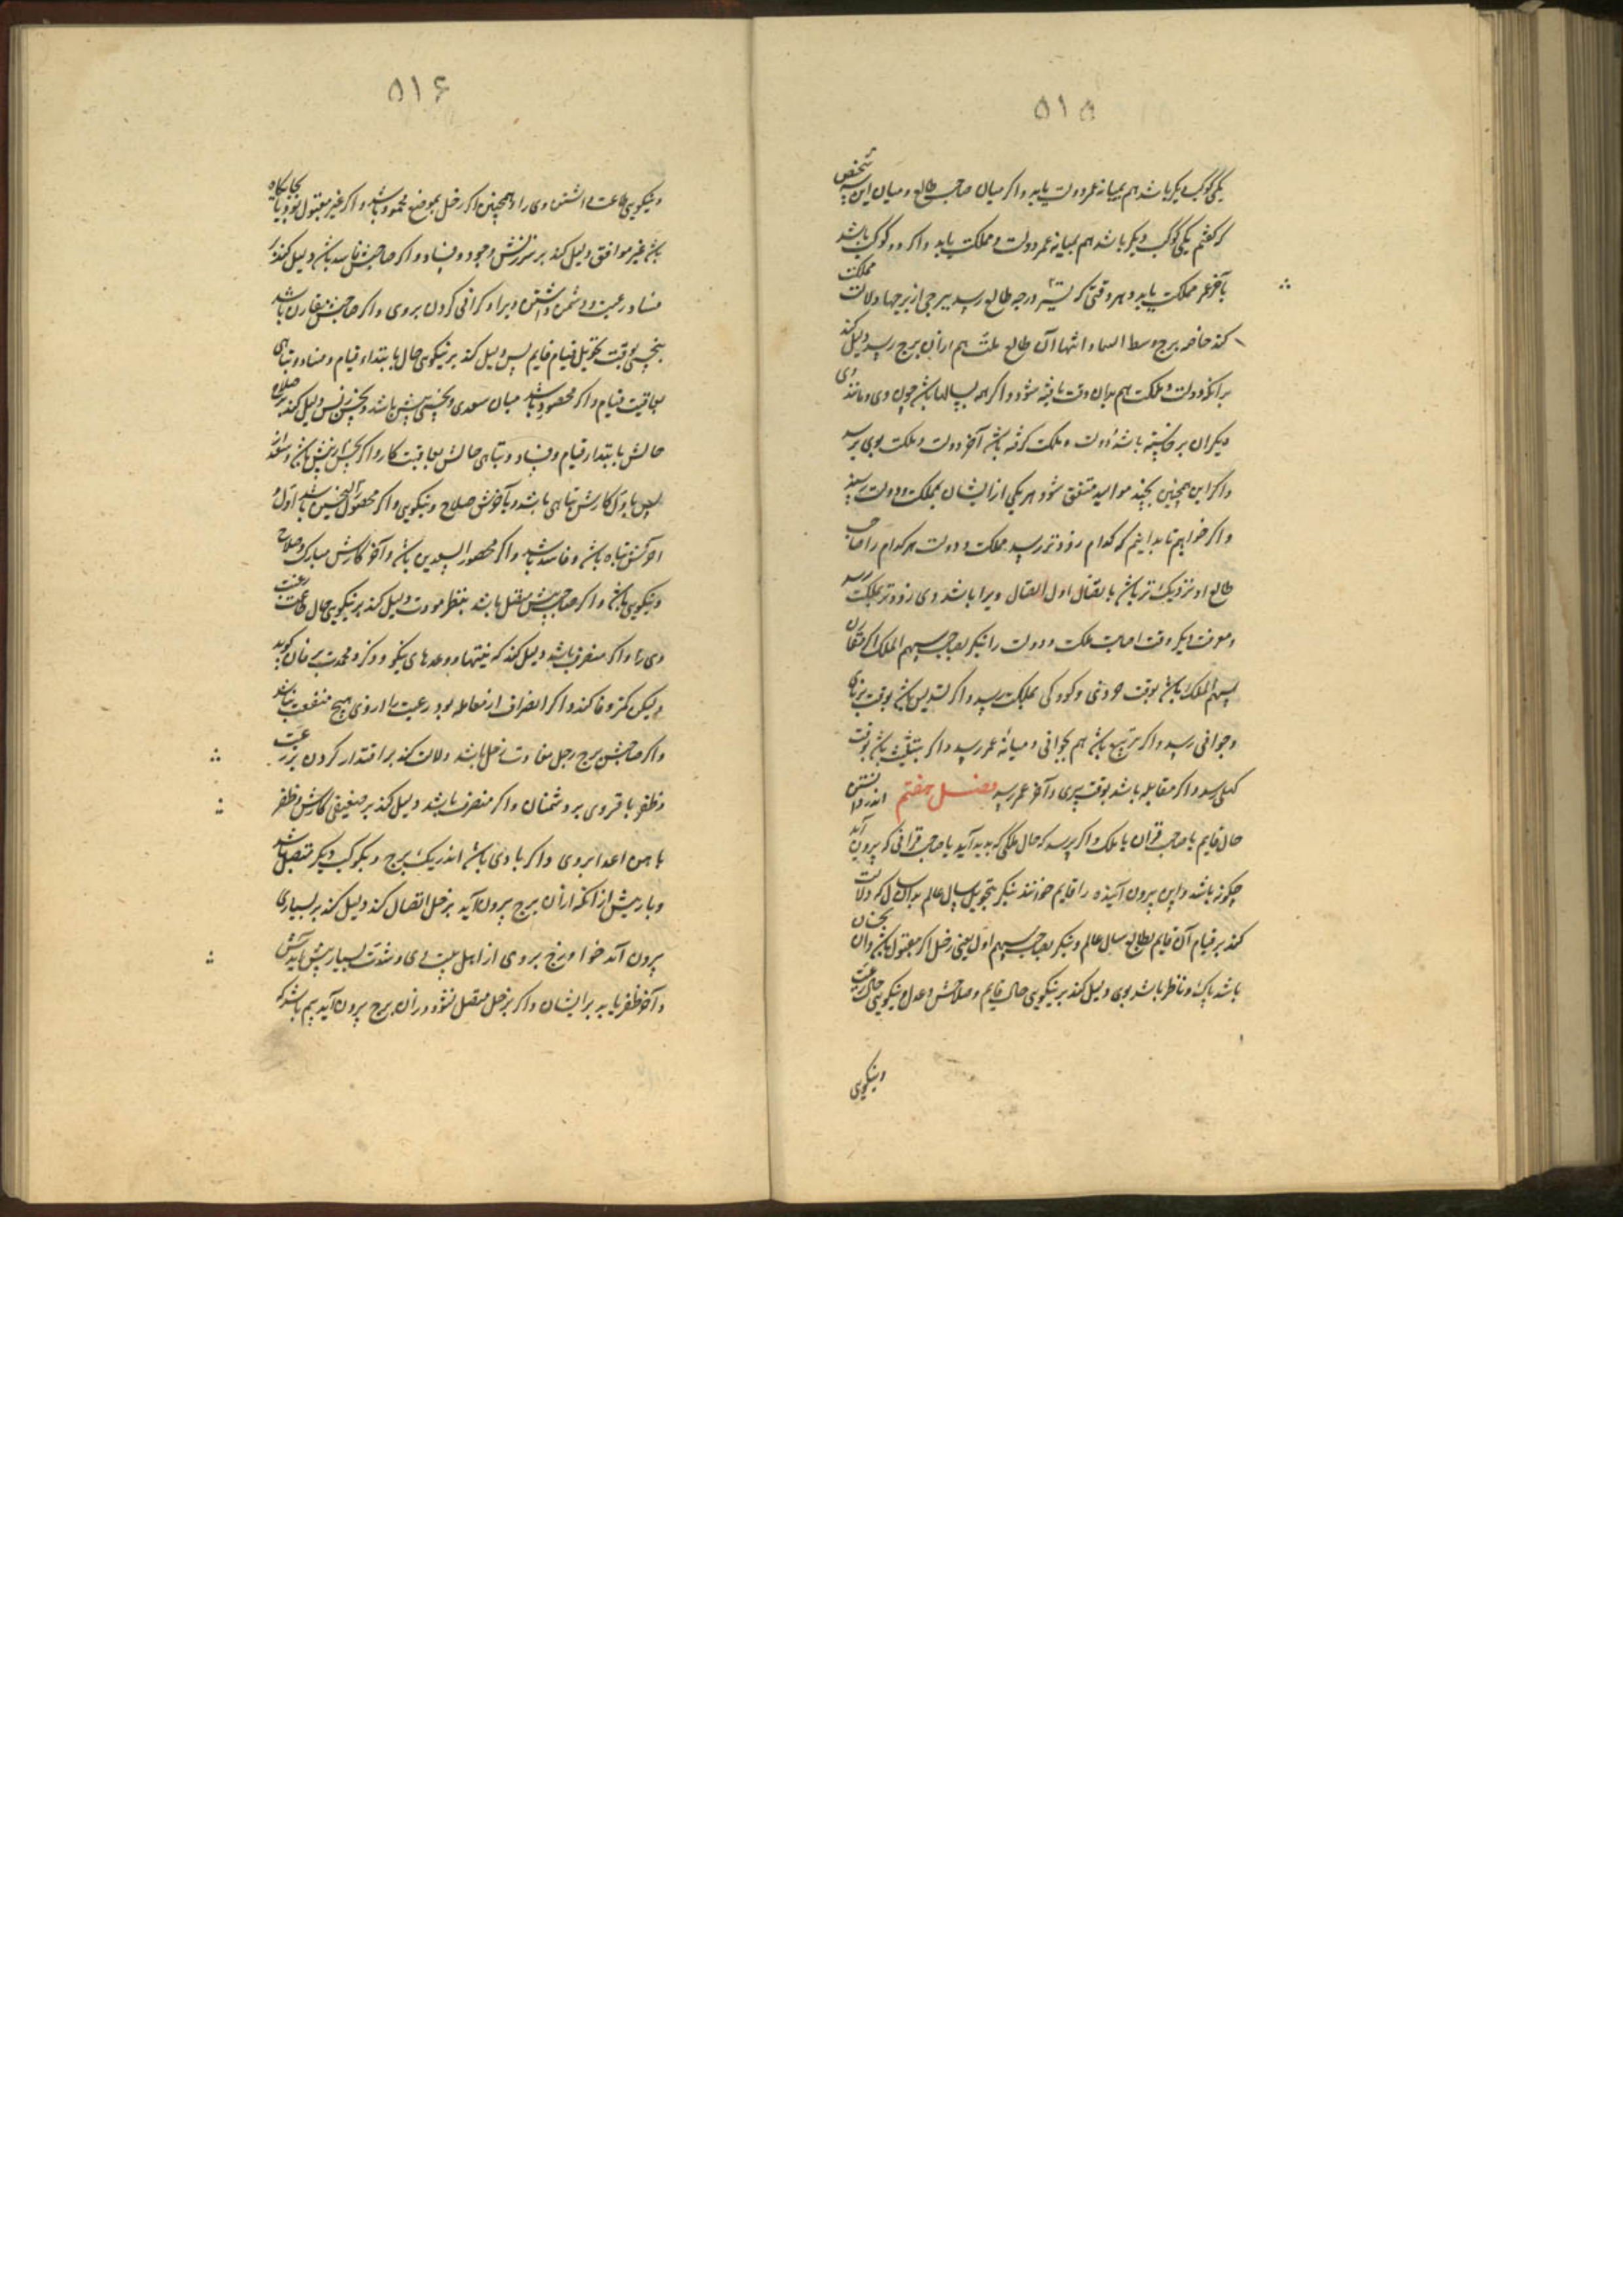 ۵۱۵
یکی کوکب دیگر باشد هم بمیانه عمر دولت یابد و اگر میان صاحب طالع و میان این سه شخص
که گفتم یکی کوکب دیگر باشد هم بمیانه عمر دولت و مملکت یابد و اگر دو کوکب باشد
بآخر عمر مملکت یابد و هر وقتی که تسیر درجه طالع رسید ببرجی از برجها دلالت مملکت
کند خاصه برج وسط السماء انتها آن طالع هم از آن برج رسد دلیل کند
بر آنکه دولت و مملکت هم بدان وقت یافته شود و اگر همه بسالها باشد چون وی و مانند وی
دیگران برخاسته باشد دولت و مملکت گرفته باشد آخر دولت و مملکت بوی برسد
و اگر این همچنین بچند موالید متفق شود هر یکی از ایشان بمملکت و دولت رسند
و اگر خواهیم تا بدانیم که کدام زودتر رسد بمملکت و دولت هر کدام را صاحب
طالع او نزدیکتر باشد باتصال اول اتصال ویرا باشد وی زودتر بمملکت رسد
و معرفت دیگر وقت اصابت مملکت و دولت را بنگر بصاحب سهم الملک اگر مقارن
سهم الملک باشد بوقت خردی و کودکی بمملکت رسد و اگر تسدیس باشد بوقت برنایی
و جوانی رسد و اگر بتربیع باشد هم بجوانی و میانه عمر رسد و اگر بتثلیث باشد بوقت
کهلی رسد و اگر مقابله باشد بوقت پیری و آخر عمر رسد فصل هفتم اندر دانستن
حال قایم یا صاحب قران یا ملک و اگر پرسد که حال ملکی که پدید آید یا صاحب قرانی که بیرون آید
چگونه باشد و این بیرون آینده را قایم خوانند بنگر بتحویل سال عالم بدان سال که دلالت
کند بر قیام آن قایم بطالع سال عالم و بنگر بصاحب سهم اول یعنی زحل اگر مقبول باشد و آن بخانان
باشد پاک و ناظر باشد بوی دلیل کند بر نیکویی حال قایم و صلاحش و عدل و نیکویی حال رعیت
و نیکویی
۵۱۶
و نیکویی طاعت داشتن وی را و همچنین اگر زحل بموضع محمود باشد و اگر غیر مقبول بود و یا بجایگاه
باشد غیر موافق دلیل کند بر سرزنش وجود و فساد و اگر صاحبش فاسد باشد دلیل کند بر
فساد رعیت و دشمن داشتن ویرا و گرانی کردن بر وی و اگر صاحبش مقارن باشد
بنحسی بوقت تحویل قیام قایم پس دلیل کند بر نیکویی حال بابتداء قیام و فساد و تباهی
بعاقبت قیام و اگر محصور باشد میان سعدی و نحسی پیش باشد و نحس از پس دلیل کند بر صلاح
حالش بابتداء قیام و فساد و تباهی حالش بعاقبت کار و اگر نحس از پیش باشد و سعد از
پس باول کارش تباهی باشد و بآخرش صلاح و نیکویی و اگر محصور النحسین باشد اول و
آخرش تباه باشد و فاسد باشد و اگر محصور السعدین باشد و آخر کارش مبارک و صلاح
و نیکویی باشد و اگر صاحبش متصل باشد بنظر مودت دلیل کند بر نیکویی حال طاعت رعیت
وی را و اگر منصرف باشد دلیل کند که نیتها و وعدهای نیکو و ذکر و محمدت بر زبان گوید
ولیکن کمتر وفا کند و اگر انصراف از مقابله بود رعیت را از وی هیچ منفعت نباشد
و اگر صاحبش برج زحل باشد دلالت کند بر اقتدار کردن بر رعیت
و ظفر یافتن وی بر دشمنان و اگر منصرف باشد دلیل کند بر ضعیفی کارش و ظفر
یافتن اعدا بر وی و اگر با وی باشد اندر یک برج و بکوکب دیگر متصل باشد
و بازپیش از آنکه از آن برج بیرون آید بزحل اتصال کند دلیل کند بر بسیاری
بیرون آمدن خوارج بر وی از اهل بیت وی و شدت بسیار پیش آیدش
و آخر ظفر یابد بر ایشان و اگر بزحل متصل نشود و از آن برج بیرون آید بیم باشد که